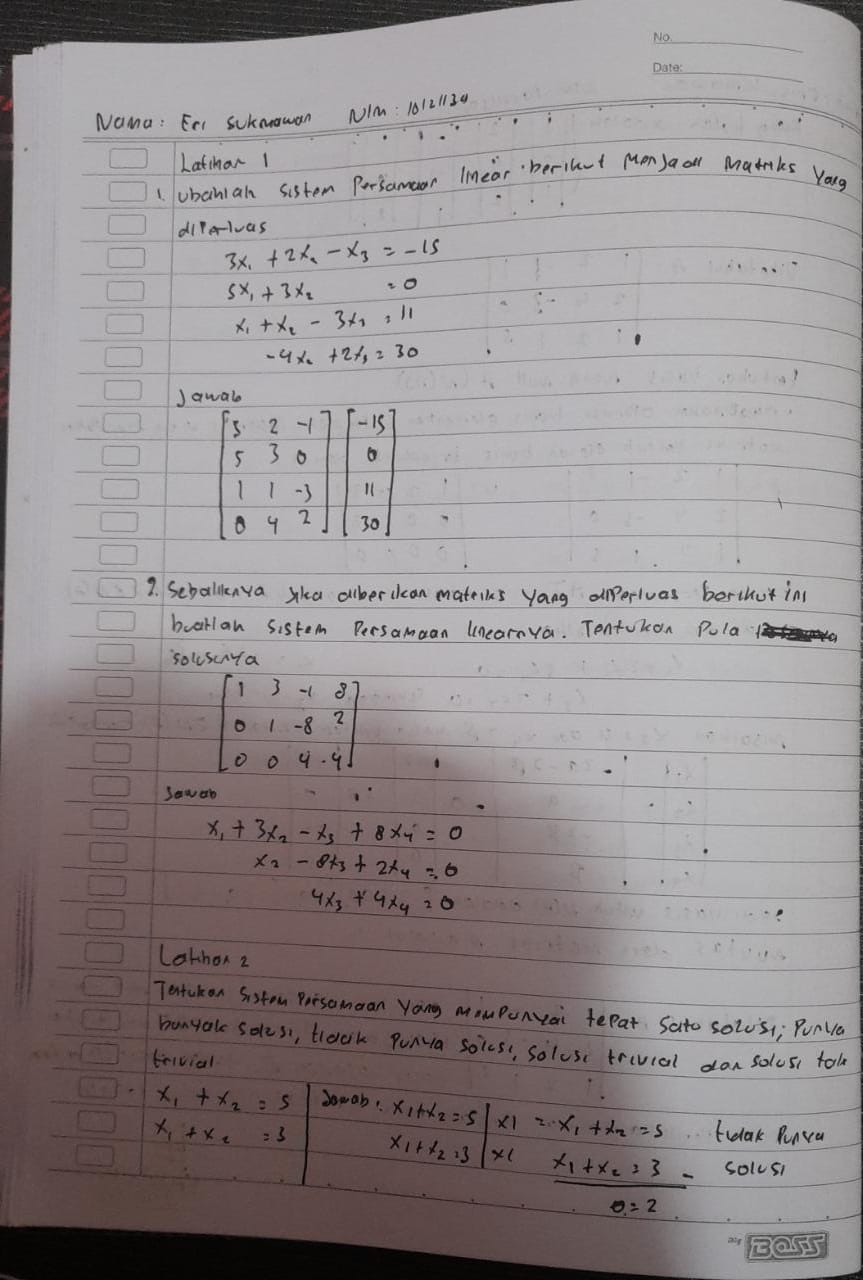 No.
Date:
Nama: Eri Sukmawan NIM: 10121134
Latihan 1
1. Ubahlah sistem Persamaan linear berikut Menjadi Matriks Yang
diperluas
3x₁ + 2x₂ - x₃ = -15
5x₁ + 3x₂ = 0
x₁ + x₂ - 3x₃ = 11
-4x₂ + 2x₃ = 30
Jawab
[3 2 -1] [-15]
[5 3 0] [0]
[1 1 -3] [11]
[0 4 2] [30]
2. Sebaliknya jika diberikan matriks Yang diPerluas berikut ini
buatlah sistem Persamaan linearnya. Tentukan Pula
solusinya
[1 3 -1 8]
[0 1 -8 2]
[0 0 4 -4]
Jawab
x₁ + 3x₂ - x₃ + 8x₄ = 0
x₂ - 8x₃ + 2x₄ = 0
4x₃ + 4x₄ = 0
Latihan 2
Tentukan Sistem Persamaan Yang mempunyai tepat satu solusi, Punya
banyak solusi, tidak Punya solusi, solusi trivial dan solusi tak
trivial
x₁ + x₂ = 5 Jawab: x₁+x₂=5 | x1 = x₁ + x₂ = 5 tidak Punya
x₁ + x₂ = 3 x₁+x₂=3 | x1 x₁ + x₂ = 3 - solusi
0 = 2
BOSS